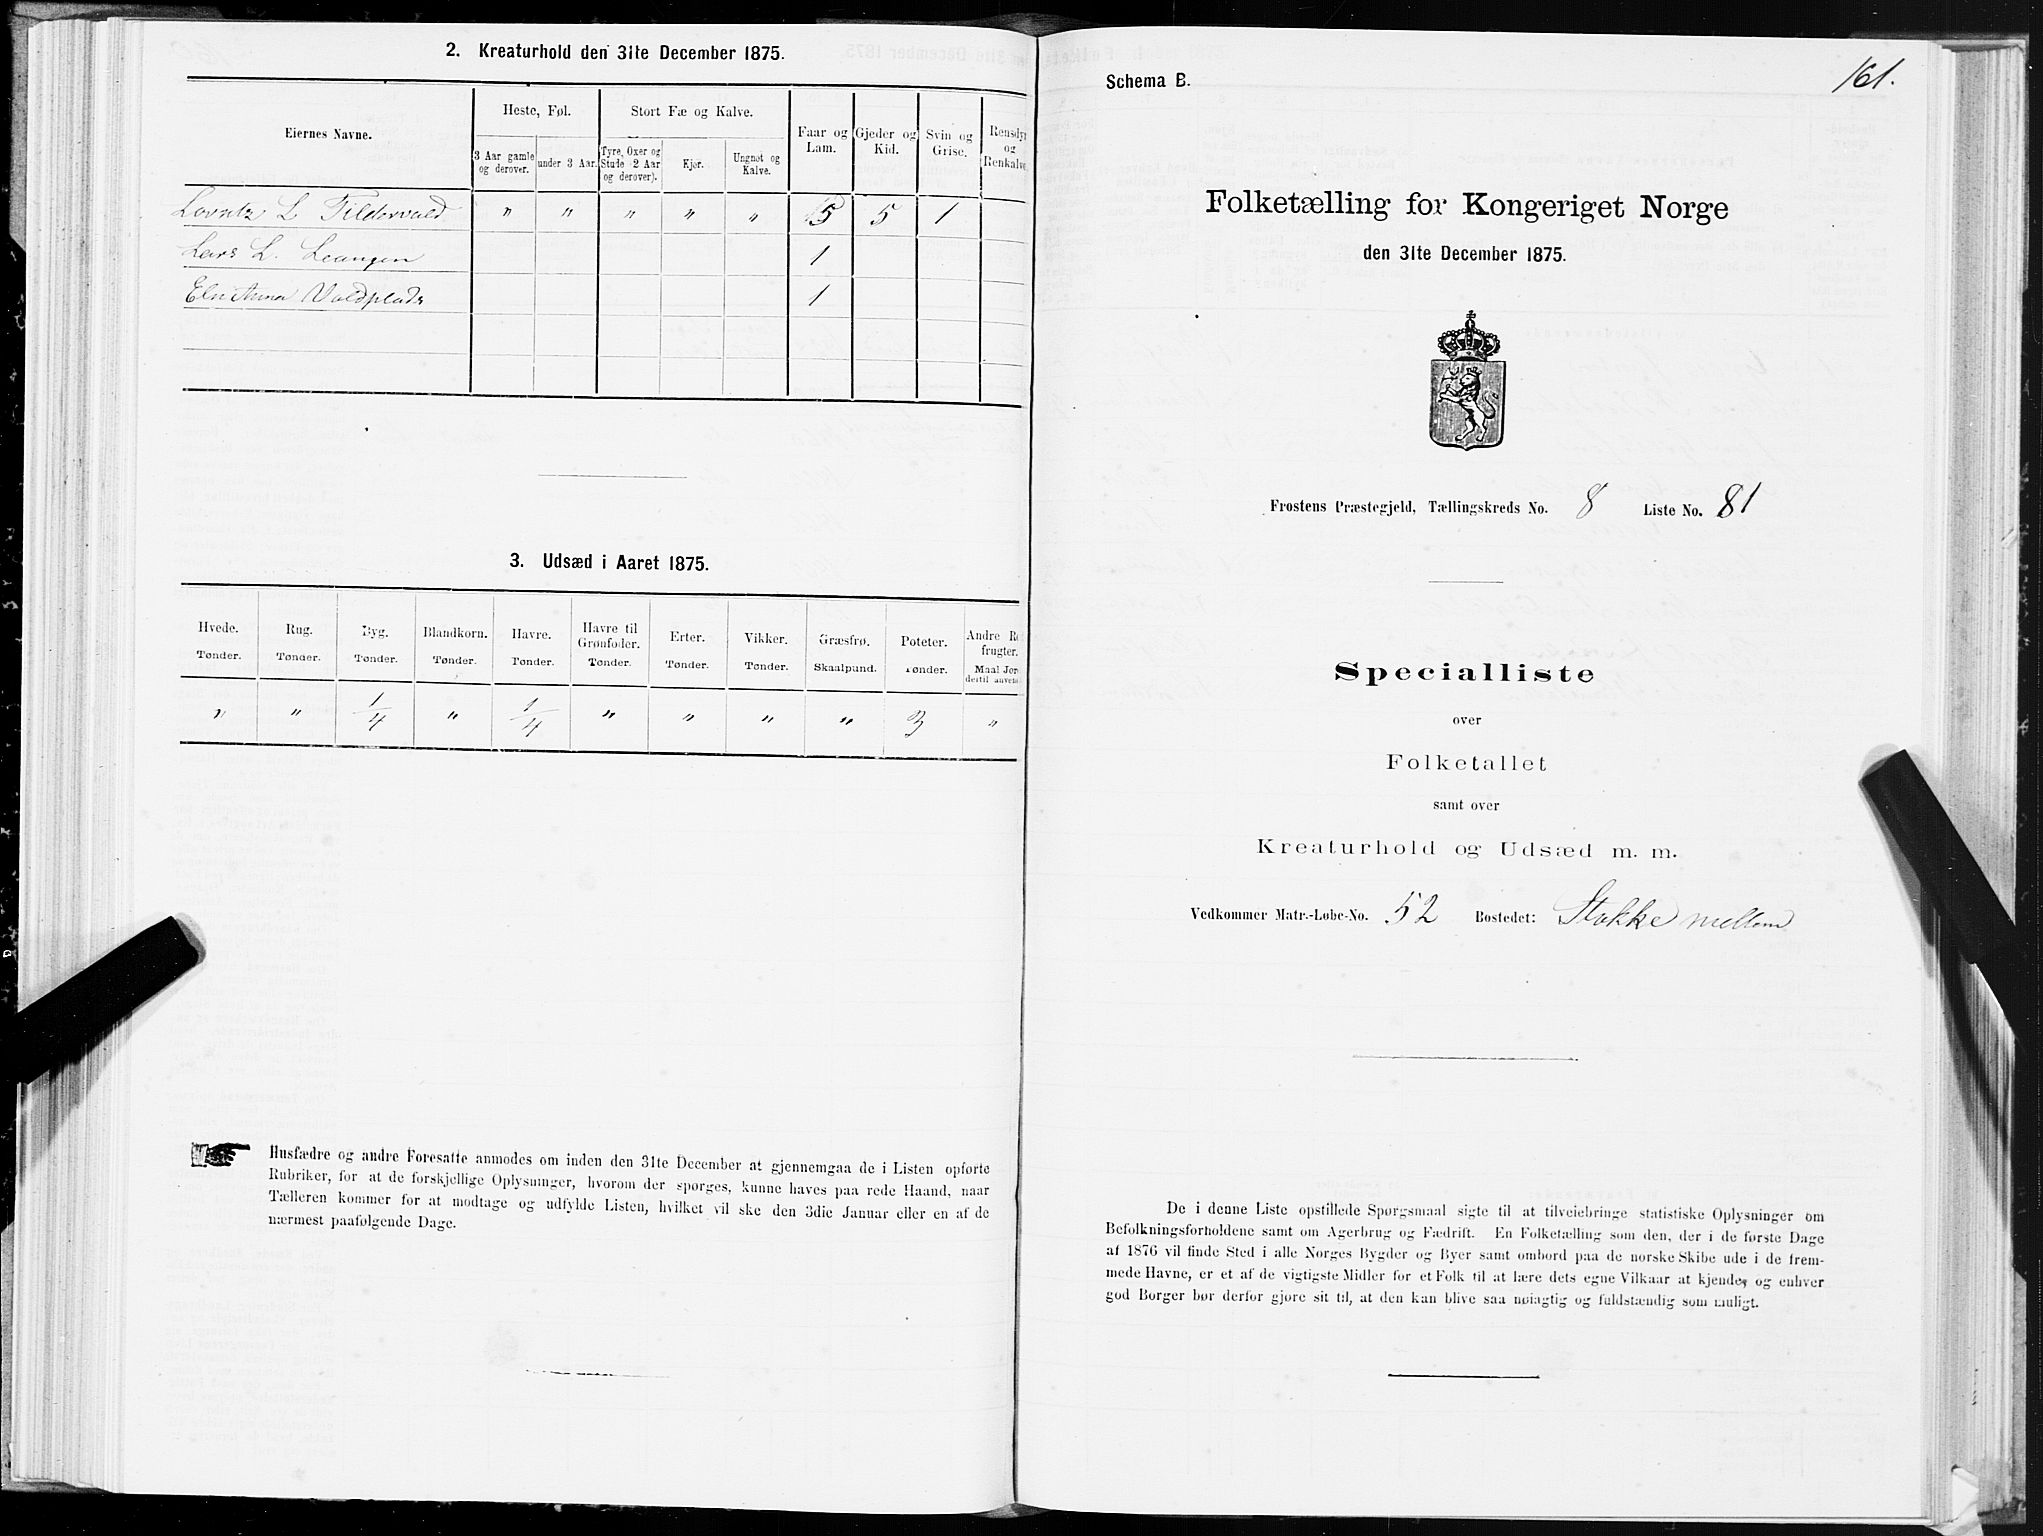 2. Kreaturhold den 31te December 1875.
Eiernes Navne.
Heste, Føl.
Stort Fæ og Kalve.
Faar og Lam.
Gjeder og Kid.
Svin og Grise.
Rensdyr og Renkalve.
3 Aar gamle og derover.
under 3 Aar.
Tyre, Oxer og Stude (2 Aar og derover).
Kjør.
Ungnøt og Kalve.
Lorntz L Tildervald " " " " " 5 5 1
Lars L. Leangen 1
Eln Anna Valdplads 1
3. Udsæd i Aaret 1875.
Hvede. Rug. Byg. Blandkorn. Havre. Havre til Grønfoder. Erter. Vikker. Græsfrø. Poteter. Andre Ro frugter.
Tønder. Tønder. Tønder. Tønder. Tønder. Tønder. Tønder. Tønder. Skaalpund. Tønder. Maal Jor destil anvend
" " 1/4 " 1/4 " " " " 3 "
Husfædre og andre Foresatte anmodes om inden den 31te December at gjennemgaa de i Listen opførte
Rubriker, for at de forskjellige Oplysninger, hvorom der spørges, kunne haves paa rede Haand, naar
Tælleren kommer for at modtage og udfylde Listen, hvilket vil ske den 3die Januar eller en af de
nærmest paafølgende Dage.
161.
Schema B.
Folketælling for Kongeriget Norge
den 31te December 1875.
Frostens Præstegjeld, Tællingskreds No. 8 Liste No. 81
Specialliste
over
Folketallet
samt over
Kreaturhold og Udsæd m. m.
Vedkommer Matr.-Løbe-No. 52 Bostedet: Stokke mellem
De i denne Liste opstillede Spørgsmaal sigte til at tilveiebringe statistiske Oplysninger om
Befolkningsforholdene samt om Agerbrug og Fædrift. En Folketælling som den, der i de første Dage
af 1876 vil finde Sted i alle Norges Bygder og Byer samt ombord paa de norske Skibe ude i de frem-
mede Havne, er et af de vigtigste Midler for et Folk til at lære dets egne Vilkaar at kjende, og enhver
god Borger bør derfor gjøre sit til, at den kan blive saa nøiagtig og fuldstændig som muligt.